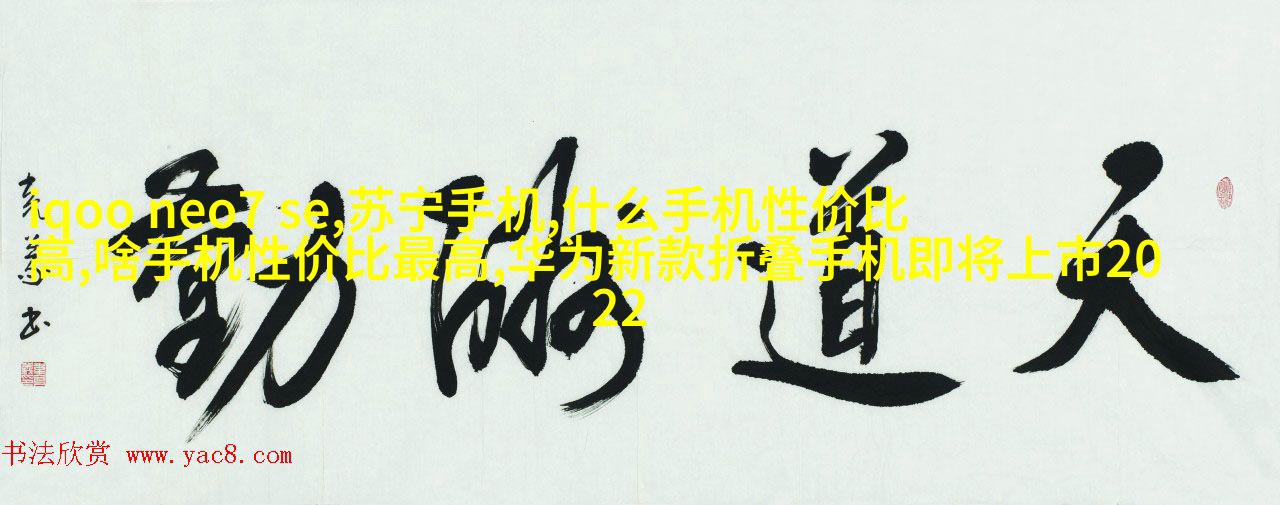 天道酬勤
iqoo neo7 se,苏宁手机,什么手机性价比
高,啥手机性价比最高,华为新款折叠手机即将上市20
22
书法欣赏 www.yac8.com